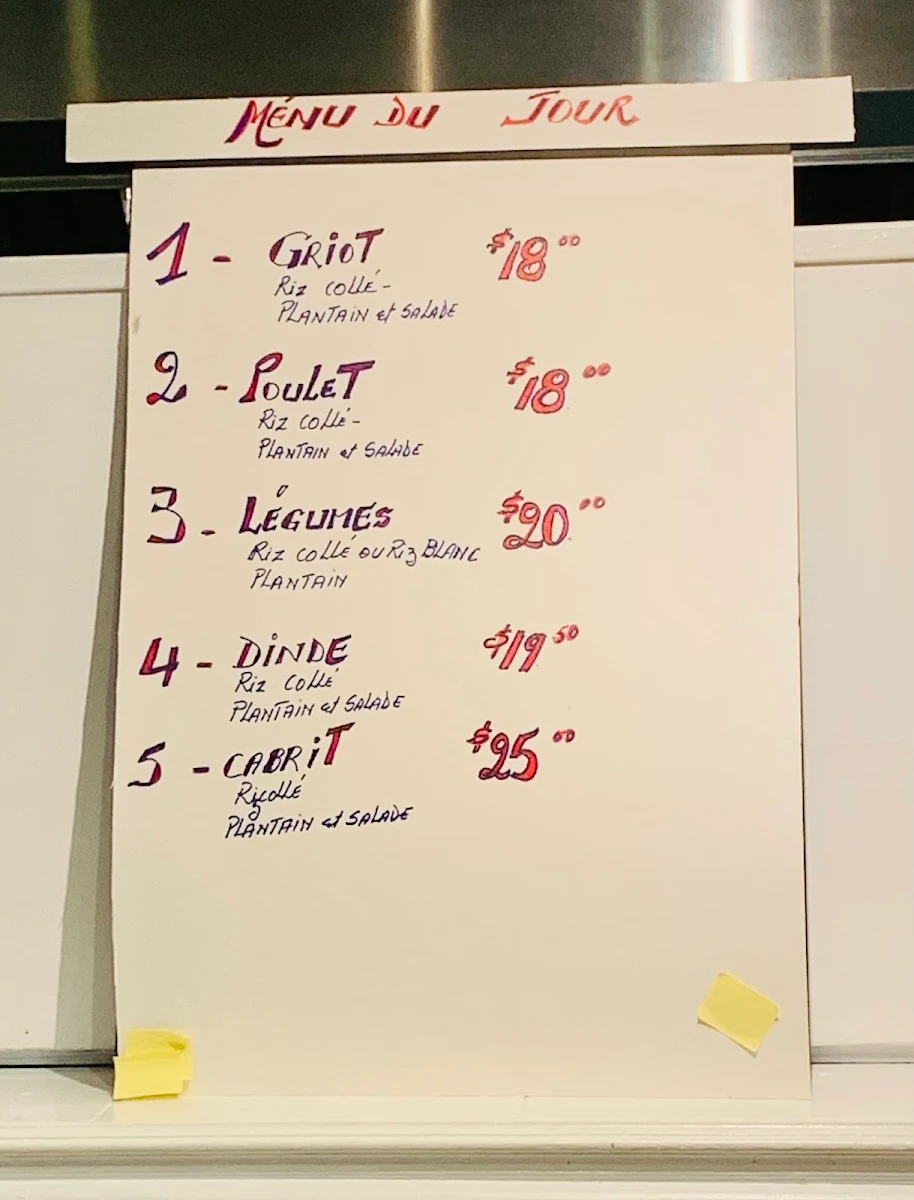 MÉNU DU JOUR
1 - GRIOT $18.00
RIZ COLLÉ -
PLANTAIN et SALADE
2 - POULET $18.00
RIZ COLLÉ -
PLANTAIN et SALADE
3 - LÉGUMES $20.00
RIZ COLLÉ OU RIZ BLANC
PLANTAIN
4 - DINDE $19.50
RIZ COLLÉ
PLANTAIN et SALADE
5 - CABRIT $25.00
Rizcollé
PLANTAIN et SALADE